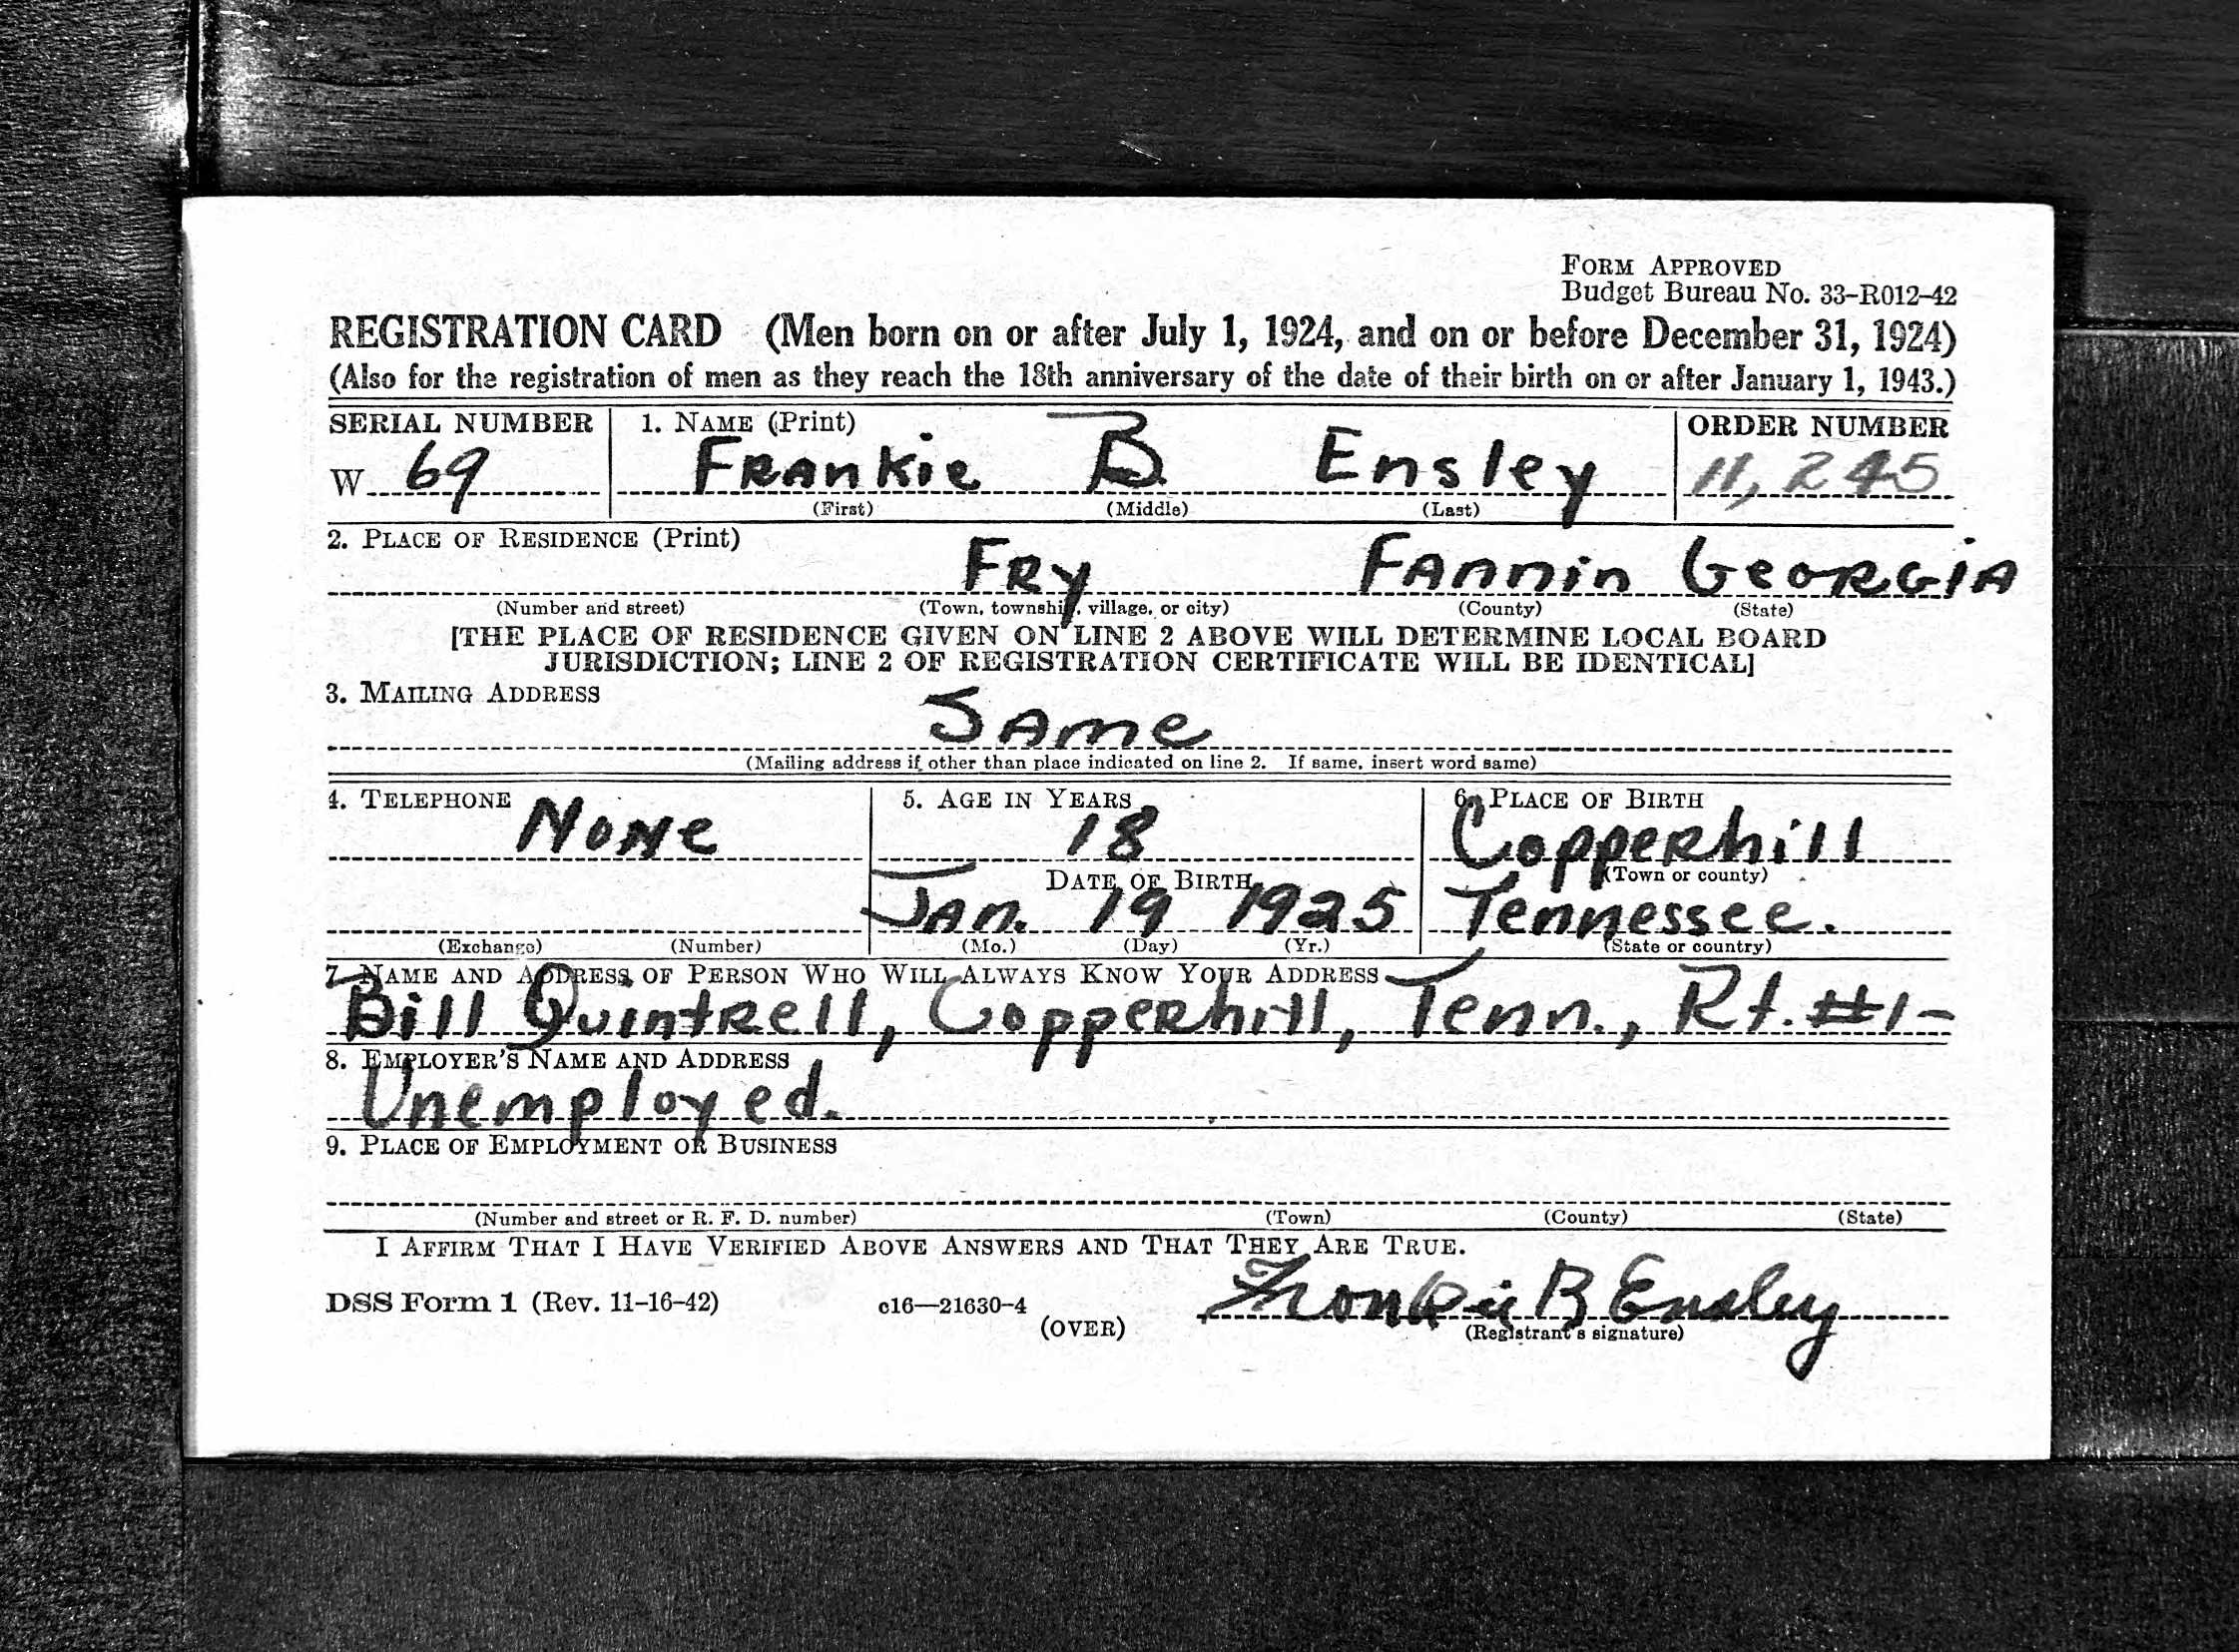 FORM APPROVED
Budget Bureau No. 33-R012-42
REGISTRATION CARD (Men born on or after July 1, 1924, and on or before December 31, 1924)
(Also for the registration of men as they reach the 18th anniversary of the date of their birth on or after January 1, 1943.)
SERIAL NUMBER 1. NAME (Print) ORDER NUMBER
W 69 Frankie B Ensley 11,245
(First) (Middle) (Last)
2. PLACE OF RESIDENCE (Print)
Fry Fannin Georgia
(Number and street) (Town, township, village, or city) (County) (State)
[THE PLACE OF RESIDENCE GIVEN ON LINE 2 ABOVE WILL DETERMINE LOCAL BOARD
JURISDICTION; LINE 2 OF REGISTRATION CERTIFICATE WILL BE IDENTICAL]
3. MAILING ADDRESS
Same
(Mailing address if other than place indicated on line 2. If same, insert word same)
4. TELEPHONE 5. AGE IN YEARS 6. PLACE OF BIRTH
None 18 Copperhill
DATE OF BIRTH (Town or county)
Jan. 19 1925 Tennessee.
(Exchange) (Number) (Mo.) (Day) (Yr.) (State or country)
7. NAME AND ADDRESS OF PERSON WHO WILL ALWAYS KNOW YOUR ADDRESS
Bill Quintrell, Copperhill, Tenn., Rt. #1-
8. EMPLOYER'S NAME AND ADDRESS
Unemployed.
9. PLACE OF EMPLOYMENT OR BUSINESS
(Number and street or R. F. D. number) (Town) (County) (State)
I AFFIRM THAT I HAVE VERIFIED ABOVE ANSWERS AND THAT THEY ARE TRUE.
DSS Form 1 (Rev. 11-16-42) c16—21630-4 Frankie B Ensley
(OVER) (Registrant's signature)